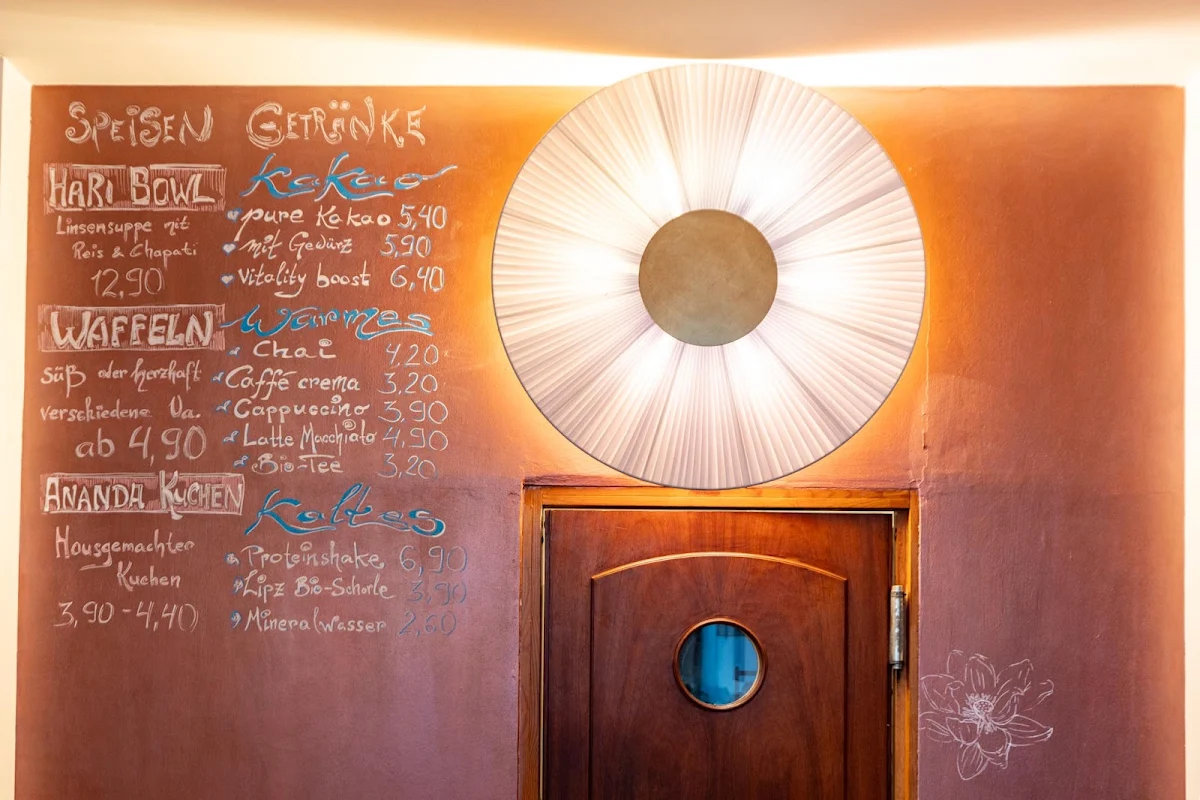 SPEISEN
HARI BOWL
Linsensuppe mit
Reis & Chapati
12,90
WAFFELN
süß oder herzhaft
verschiedene Va.
ab 4,90
ANANDA KUCHEN
Hausgemachter
Kuchen
3,90 - 4,40
GETRÄNKE
Kakao
pure Kakao 5,40
mit Gewürz 5,90
Vitality boost 6,40
Warmes
Chai 4,20
Caffé crema 3,20
Cappuccino 3,90
Latte Macchiato 4,90
Bio-Tee 3,20
Kaltes
Proteinshake 6,90
Lipz Bio-Schorle 3,90
Mineralwasser 2,60